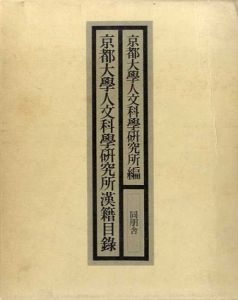 京都大學人文科學研究所編
京都大學人文科學研究所漢籍目錄
同朋舎